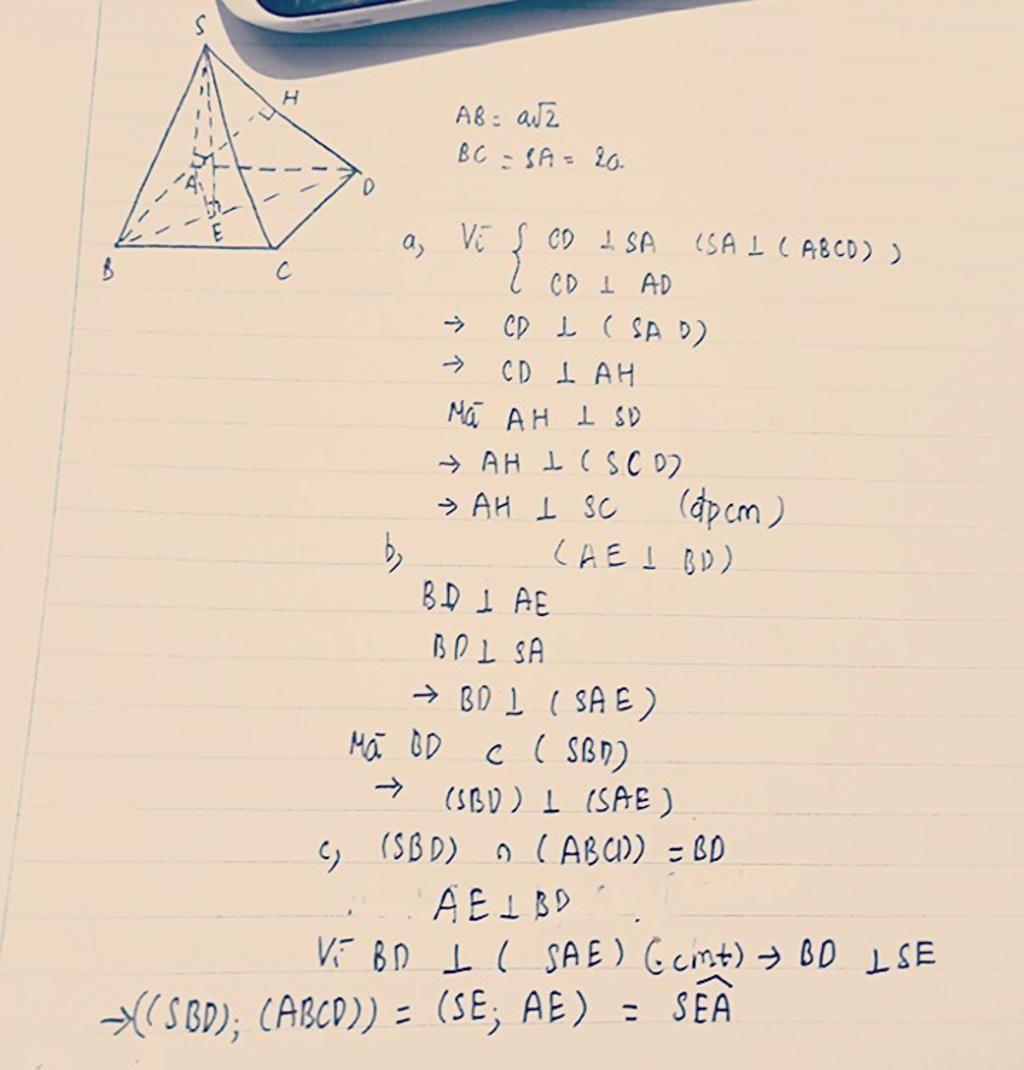 S
H
A
D
E
B
C
AB = a√2
BC = SA = 2a
a, Vì { CD ⊥ SA (SA ⊥ (ABCD))
CD ⊥ AD
→ CD ⊥ (SAD)
→ CD ⊥ AH
Mà AH ⊥ SD
→ AH ⊥ (SCD)
→ AH ⊥ SC (đpcm)
b, (AE ⊥ BD)
BD ⊥ AE
BD ⊥ SA
→ BD ⊥ (SAE)
Mà BD ⊂ (SBD)
→ (SBD) ⊥ (SAE)
c, (SBD) ∩ (ABCD) = BD
AE ⊥ BD
Vì BD ⊥ (SAE) (cmt) → BD ⊥ SE
→ ((SBD); (ABCD)) = (SE; AE) = SÊA